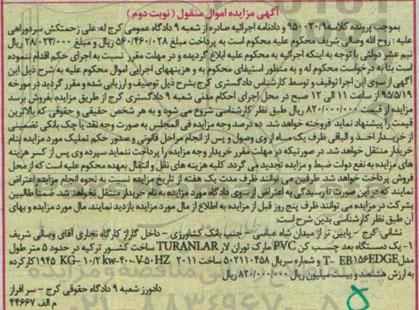 آگهی مزایده اموال منقول (نوبت دوم)
بموجب پرونده کلاسه ۹۵۰۰۳۰۹۸ و دادنامه اجرائیه صادره از شعبه ۹ دادگاه عمومی کرج له: علی زحمتکش سردوراهی
علیه: روح اله وصالی شریف محکوم علیه محکوم است به پرداخت مبلغ ۵۶۰/۴۶۰/۰۲۸ ریال و مبلغ ۲۸/۰۲۳/۰۰۰ ریال
نیم عشر دولتی با توجه به اینکه اجرائیه به محکوم علیه ابلاغ گردیده و در مهلت مقرر نسبت به اجرای حکم اقدام ننموده
است بنا به درخواست محکوم له و به منظور استیفای محکوم به و هزینههای اجرایی اموال محکوم علیه به شرح ذیل این
آگهی از سوی این اجرا توقیف و توسط کارشناس دادگستری کرج بشرح ذیل توصیف و ارزیابی شده و مقرر گردید در مورخه
۱۹/۵/۹۵ از ساعت ۱۱ الی ۱۲ صبح در محل اجرای احکام مدنی شعبه ۹ دادگستری کرج از طریق مزایده بفروش برسد
مزایده از قیمت ۸۲۰/۰۰۰/۰۰۰ ریال طبق نظر کارشناسی شروع می شود و به هر شخص حقیقی و حقوقی که بالاترین
قیمت را پیشنهاد نماید فروخته خواهد شد. ده درصد وجه مزایده فی المجلس به صورت وجه نقد یا چک بانکی تضمینی
از خریدار اخذ و الباقی ظرف یک ماه از وی وصول و پس از انجام مراحل قانونی و صدور حکم تملیک مورد مزایده بنام
خریدار منتقل خواهد شد. در صورتیکه در مهلت مقرر خریدار وجه مزایده را پرداخت ننماید سپرده وی پس از کسر هزینه
های مزایده به نفع دولت ضبط و مزایده تجدید می گردد. کلیه هزینه های نقل و انتقال بعهده محکوم علیه است که از محل
فروش پرداخت خواهد شد. طرفین می توانند ظرف مدت یک هفته از تاریخ مزایده نسبت به نحوه انجام مزایده اعتراض
نمایند که در این صورت تا رسیدگی به اعتراض از سوی دادگاه مورد مزایده به نام خریدار منتقل نخواهد شد. ضمنا طالبین
شرکت در مزایده می توانند ظرف پنج روز قبل از مزایده به اطلاع از مال مورد مزایده بازدید نمایند. مال مورد مزایده و بهای
آن طبق نظر کارشناسی بدین شرح است:
نشانی: کرج - پایین تر از میدان شاه عباسی - جنب بانک کشاورزی - داخل گاراژ کارگاه نجاری آقای وصالی شریف
۱- یک دستگاه بعد چسب کن PVC مارک توران لار TURANLAR ساخت کشور ترکیه در حدود ۵ متر طول
مدل T- EB۱۵۶EDGE و شماره سریال ۵۰۲۱۱۰۴۵۸ ساخت ۲۰۱۱ ۱۹۴۵ KG- ۱۰/۲ kw-۴۰۰V-۵۰ HZ کارکرده
به ارزش هشتصد و بیست میلیون ریال ۸۲۰/۰۰۰/۰۰۰ ریال
دادورز شعبه ۹ دادگاه حقوقی کرج - سرافراز
م الف ۴۴۶۶۷